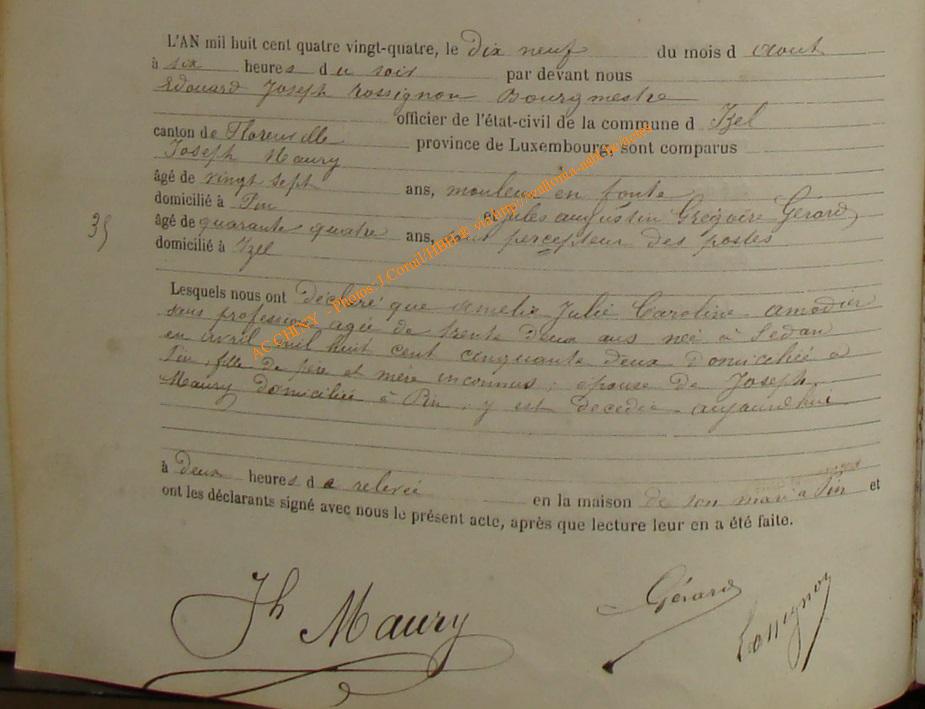 L'AN mil huit cent quatre vingt-quatre, le Dix neuf du mois d Aout
à six heures du soir par devant nous
Edouard Joseph Rossignon Bourgmestre
officier de l'état-civil de la commune d Izel
canton de Florenville province de Luxembourg, sont comparus
Joseph Maury
âgé de vingt sept ans, mouleur en fonte
domicilié à Pin et Jules Augustin Grégoire Gérard,
âgé de quarante quatre ans, percepteur des postes
domicilié à Izel
35
Lesquels nous ont Déclaré que Amelie Julie Caroline Amodier
sans profession agée de trente deux ans née à Sedan
en avril mil huit cent cinquante deux domiciliée à
Pin, fille de père et mère inconnus, epouse de Joseph
Maury domiciliée à Pin, y est decedée aujourdhui
à Deux heures de relevée en la maison de son mari à Pin et
ont les déclarants signé avec nous le présent acte, après que lecture leur en a été faite.
Jh Maury
Gérard
Rossignon
AC CHINY - Photos J.Cornil/HBH